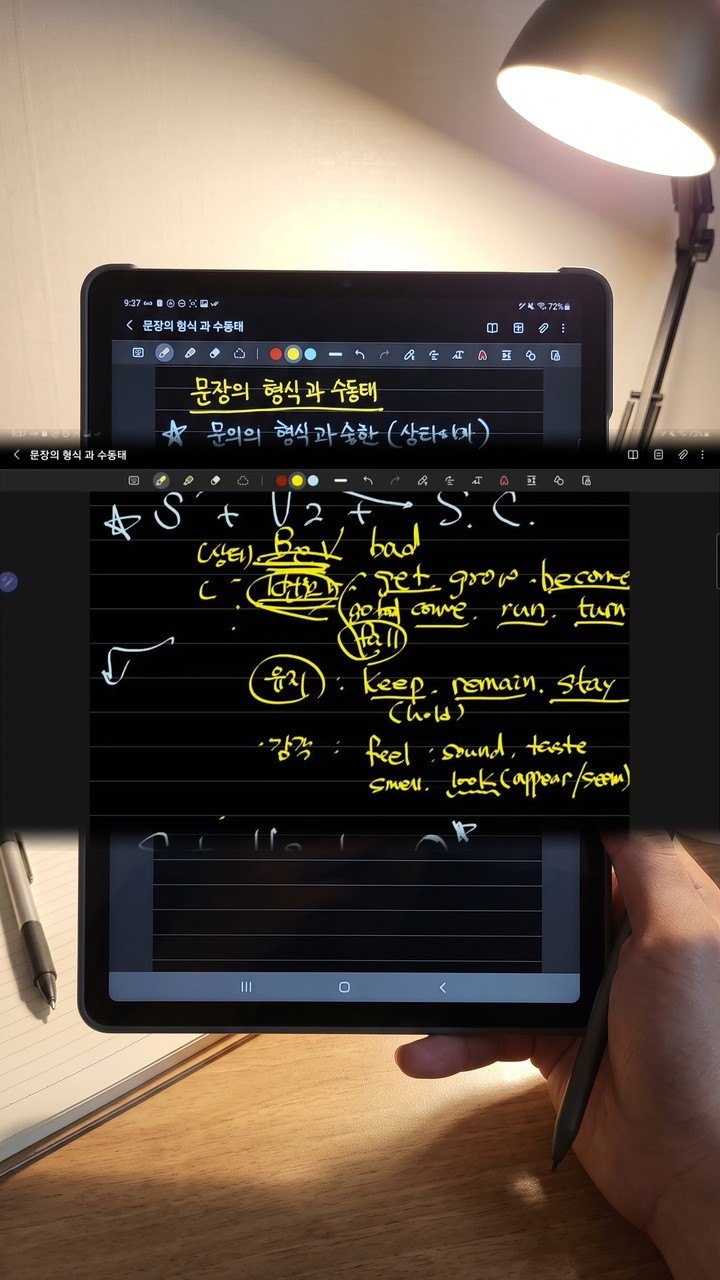 9:37 72%
문장의 형식 과 수동태
문장의 형식과 수동태
문장의 형식 과 수동태
S + V2 + S.C.
(상태). Be V bad
get. grow. become
come. run. turn
fall
유지 : keep. remain. stay
(hold)
·감각 : feel : sound. taste
smell. look (appear/seem)